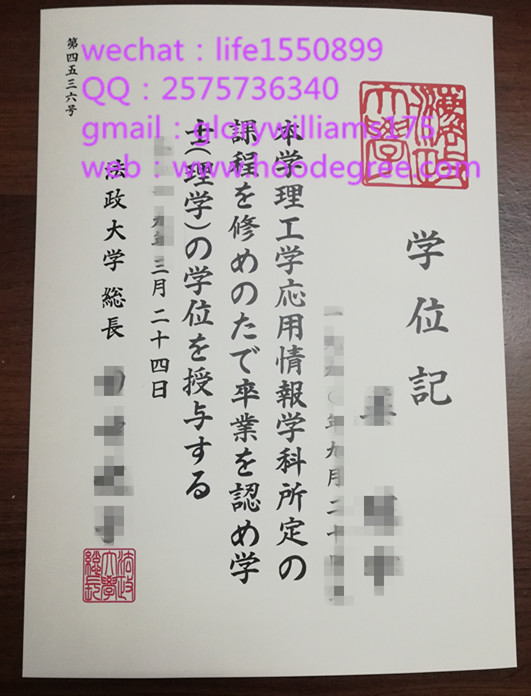 wechat：life1550899
QQ：2575736340
gmail：glorywilliams175
web：www.hoodegree.com
学位記
年九月二十
本学理工学応用情報学科所定の
課程を修めのたで卒業を認め学
士(理学)の学位を授与する
年三月二十四日
法政大学 総長
法政大学総長
第四五三六号